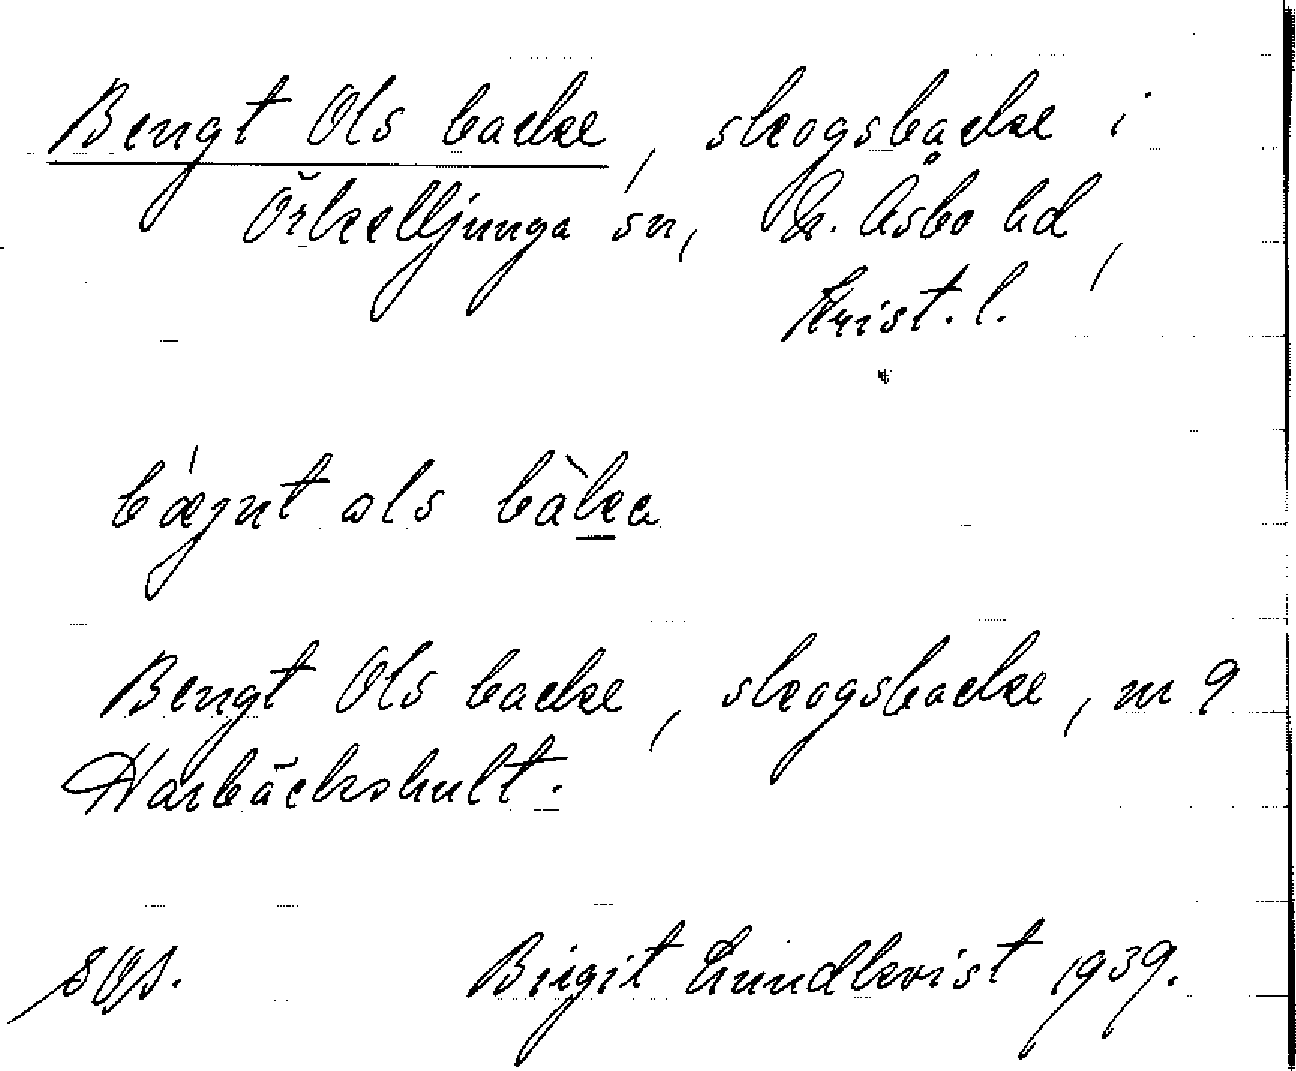 Bengt Ols backe, skogsbacke i
Örkelljunga sn, N. Åsbo hd,
Krist. l.
bǽŋt ols bàka
Bengt Ols backe, skogsbacke, m 9
Harbäckshult.
Birgit Lundkvist 1939.